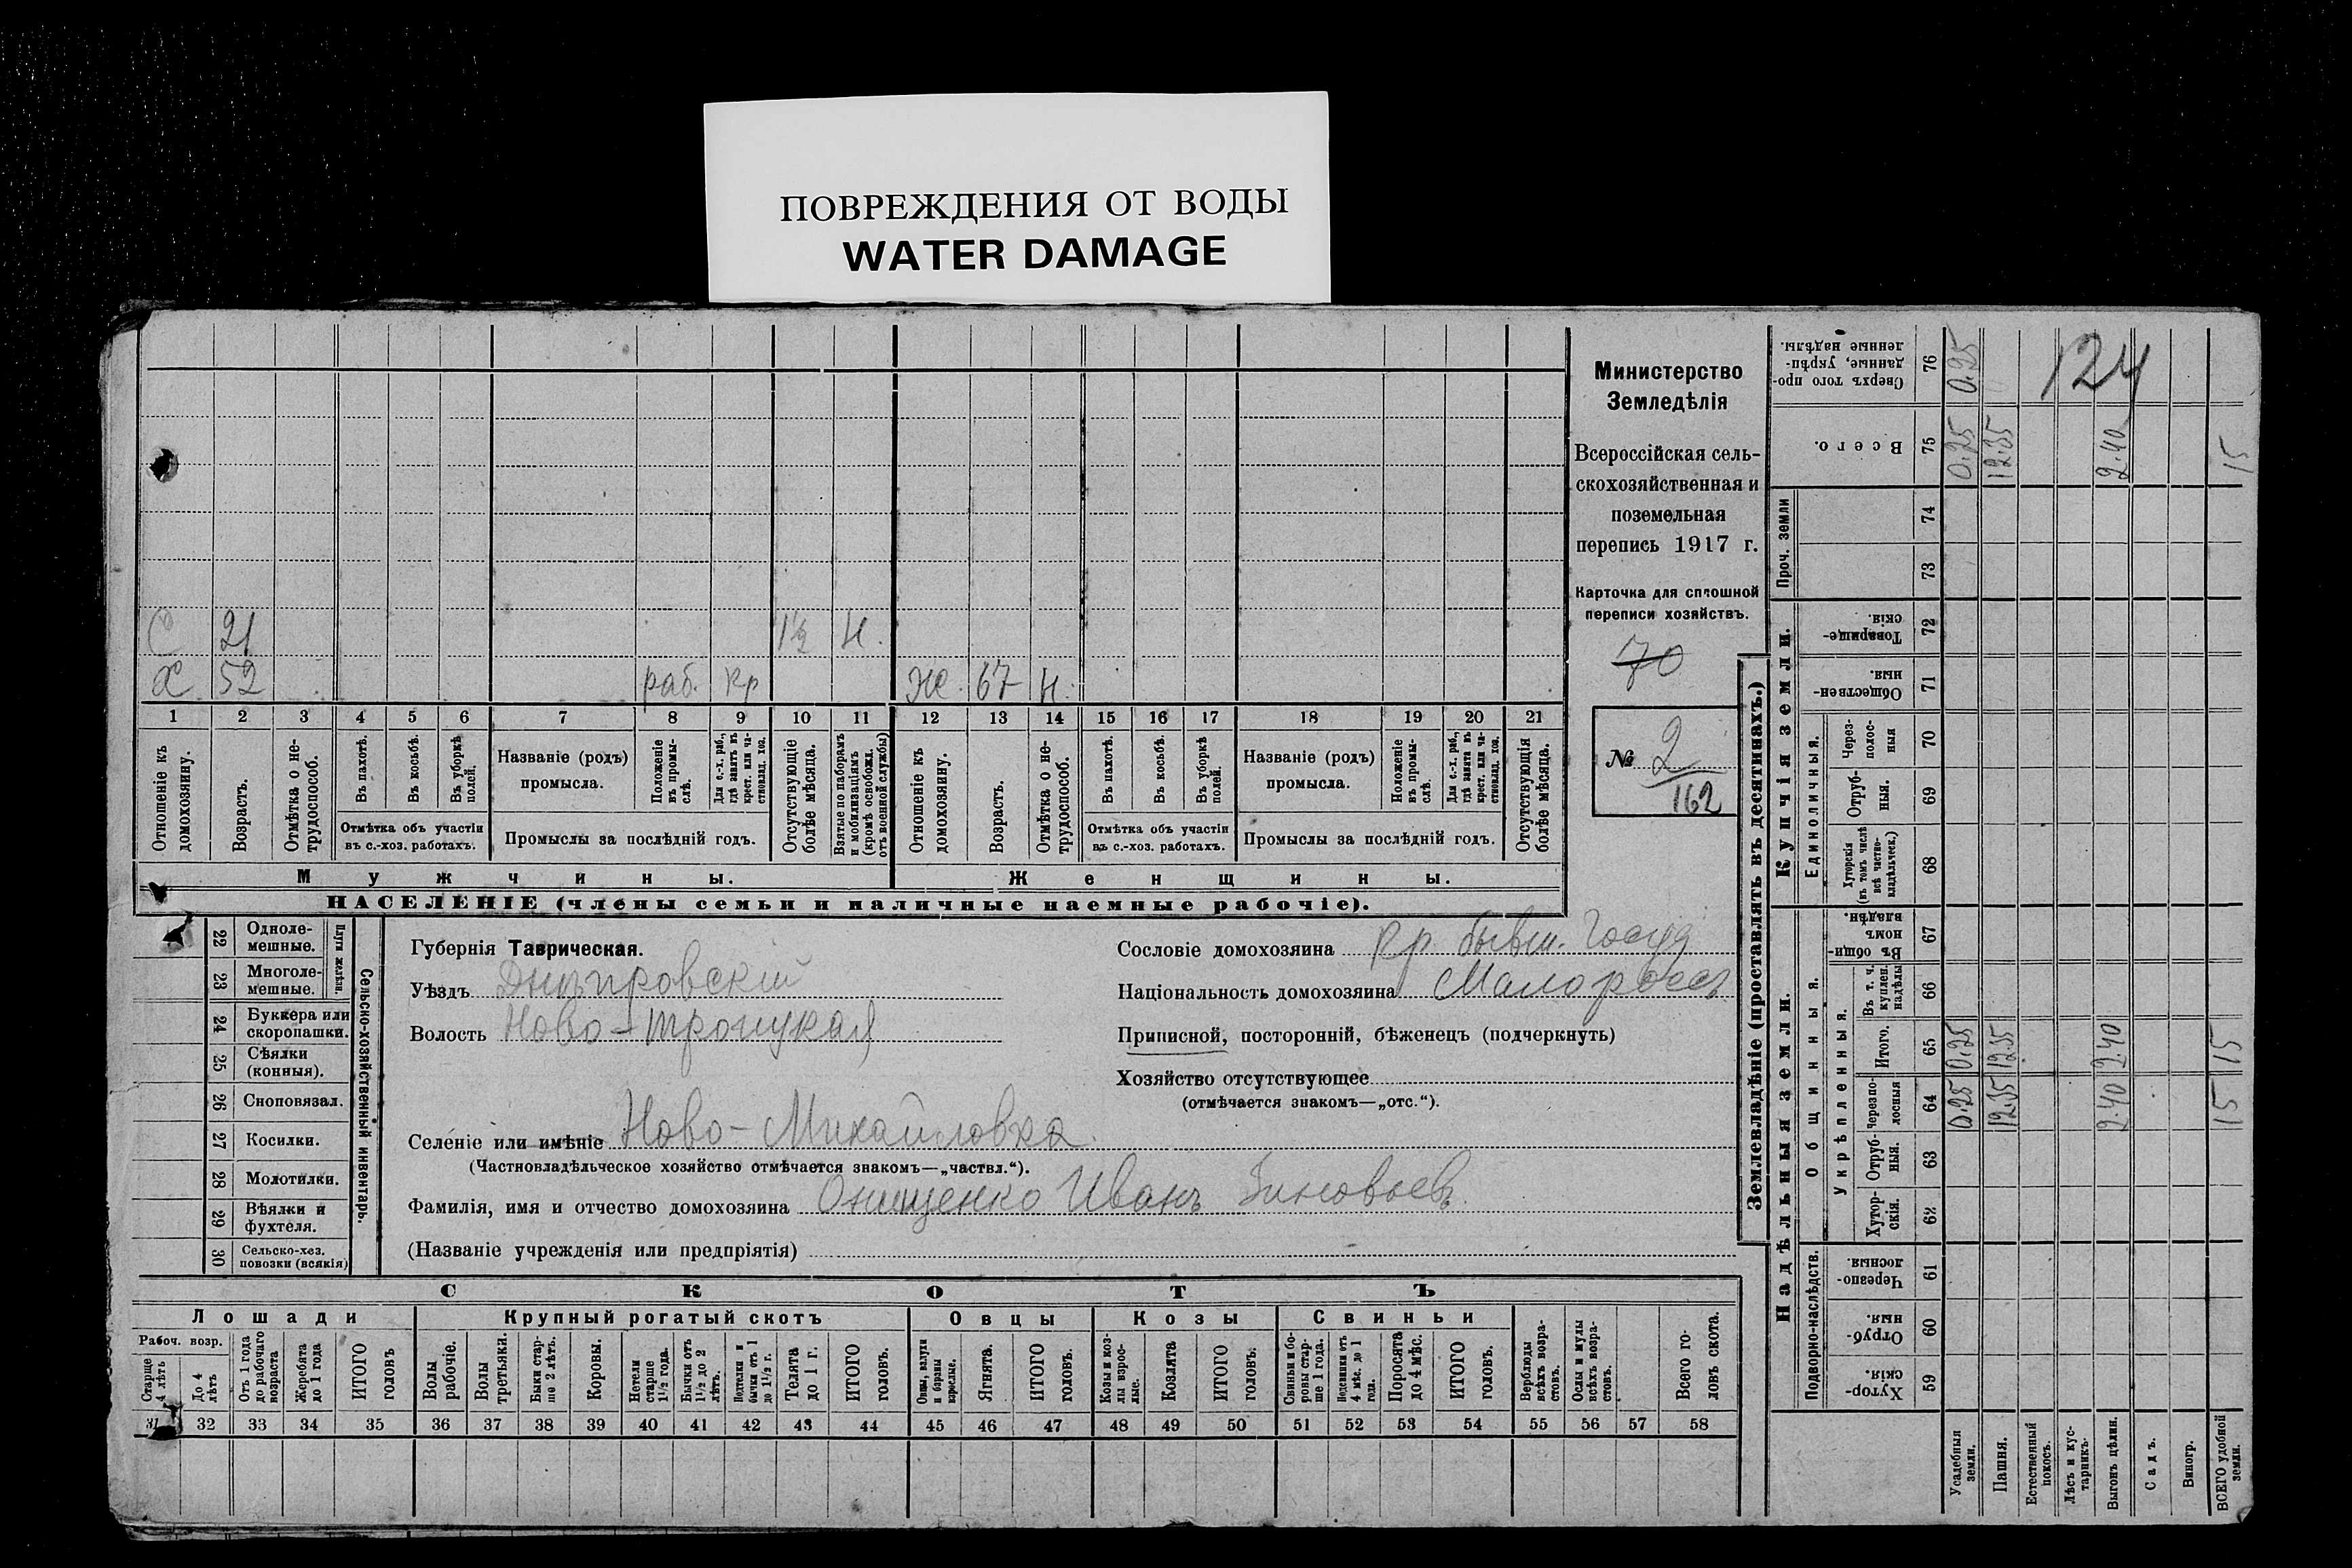 ПОВРЕЖДЕНИЯ ОТ ВОДЫ
WATER DAMAGE
С 21 1½ Н.
Х 52 раб. кр Ж. 67 Н.
1 2 3 4 5 6 7 8 9 10 11 12 13 14 15 16 17 18 19 20 21
Отношеніе къ домохозяину.
Возрастъ.
Отмѣтка о не-
трудоспособ.
Въ пахотѣ.
Въ косьбѣ.
Въ уборкѣ полей.
Отмѣтка объ участіи
въ с.-хоз. работахъ.
Названіе (родъ)
промысла.
Положеніе въ промы-
слѣ.
Для с.-х. раб., гдѣ занятъ въ крест. или ча-
стновлад. хоз.
Промыслы за послѣдній годъ.
Отсутствующіе болѣе мѣсяца.
Взятые по наборамъ и мобилизаціямъ (кромѣ освобожд. отъ военной службы)
Отношеніе къ домохозяину.
Возрастъ.
Отмѣтка о не-
трудоспособ.
Въ пахотѣ.
Въ косьбѣ.
Въ уборкѣ полей.
Отмѣтка объ участіи
въ с.-хоз. работахъ.
Названіе (родъ)
промысла.
Положеніе въ промы-
слѣ.
Для с.-х. раб., гдѣ занята въ крест. или ча-
стновлад. хоз.
Промыслы за послѣдній годъ.
Отсутствующія болѣе мѣсяца.
Мужчины.
Женщины.
НАСЕЛЕНІЕ (члены семьи и наличные наемные рабочіе).
Министерство
Земледѣлія
Всероссійская сель-
скохозяйственная и
поземельная
перепись 1917 г.
Карточка для сплошной
переписи хозяйствъ.
70
№ 2
162
22 Одноле-
мешные.
23 Многоле-
мешные.
Плуги желѣзн.
24 Буккера или
скоропашки.
25 Сѣялки
(конныя).
26 Сноповязал.
27 Косилки.
28 Молотилки.
29 Вѣялки и
фухтеля.
30 Сельско-хоз.
повозки (всякія)
Сельско-хозяйственный инвентарь.
Губернія Таврическая.
Уѣздъ Днѣпровскій
Волость Ново-Троицкая
Сословіе домохозяина кр. бывш. Госуд
Національность домохозяина Малороссъ
Приписной, посторонній, бѣженецъ (подчеркнуть)
Хозяйство отсутствующее
(отмѣчается знакомъ—„отс.“).
Селеніе или имѣніе Ново-Михайловка
(Частновладѣльческое хозяйство отмѣчается знакомъ—„частвл.“).
Фамилія, имя и отчество домохозяина Онищенко Иванъ Зиновьевъ
(Названіе учрежденія или предпріятія)
СКОТЪ
Лошади
Крупный рогатый скотъ
Овцы
Козы
Свиньи
Рабоч. возр.
Старше 4 лѣтъ
До 4 лѣтъ
Отъ 1 года до рабочаго возраста
Жеребята до 1 года
ИТОГО головъ
Волы рабочіе.
Волы третьяки.
Быки стар-
ше 2 лѣтъ.
Коровы.
Нетели старше 1½ года.
Бычки отъ 1½ до 2 лѣтъ.
Подтелки и бычки отъ 1 до 1½ г.
Телята до 1 г.
ИТОГО головъ.
Овцы, валухи и бараны взрослые.
Ягнята.
ИТОГО головъ.
Козы и коз-
лы взрос-
лые.
Козлята
ИТОГО головъ.
Свиньи и бо-
ровы стар-
ше 1 года.
Подсвинки отъ 4 мѣс. до 1 года.
Поросята до 4 мѣс.
ИТОГО головъ.
Верблюды всѣхъ возра-
стовъ.
Ослы и мулы всѣхъ возра-
стовъ.
Всего го-
ловъ скота.
31 32 33 34 35 36 37 38 39 40 41 42 43 44 45 46 47 48 49 50 51 52 53 54 55 56 57 58
Землевладѣніе (проставлять въ десятинахъ.)
Надѣльныя земли.
Купчія земли.
Проч. земли
Подворно-наслѣдств.
Общинныя.
Укрѣпленныя.
Единоличныя.
124
Сверхъ того про-
данные, укрѣп-
ленные надѣлы. 76 0.25
Всего. 75 0.25 12.35 2.40 15
74
73
Товарище-
скія. 72
Обществен-
ныя 71
Через-
полос-
ныя 70
Отруб-
ныя. 69
Хуторскія (въ томъ числѣ всѣ частно-
владѣльческ.) 68
Въ общин-
номъ владѣн. 67
Въ т. ч. куплен. надѣлы 66
Итого. 65 0.25 12.35 2.40 15
Черезпо-
лосныя 64 0.25 12.35 2.40 15
Отруб-
ныя. 63
Хутор-
скія. 62
Черезпо-
лосныя. 61
Отруб-
ныя. 60
Хутор-
скія. 59
Усадебныя земли.
Пашня.
Естественный покосъ.
Лѣсъ и кус-
тарникъ.
Выгонъ цѣлин.
Садъ.
Виногр.
ВСЕГО удобной земли.